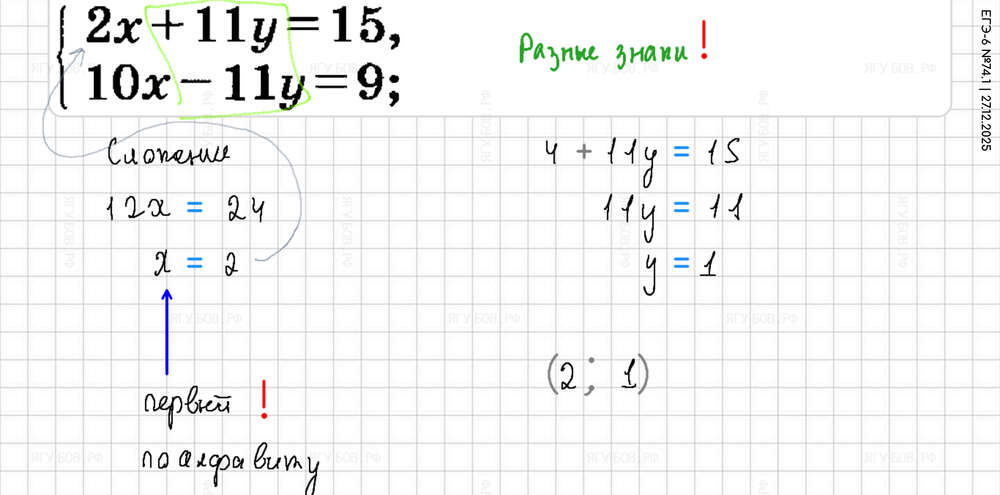 2x + 11y = 15,
10x − 11y = 9;
Разные знаки !
Сложение
12x = 24
x = 2
первый !
по алфавиту
4 + 11y = 15
11y = 11
y = 1
(2; 1)
ЕГЭ-6 №74.1 | 27.12.2025
ЯГУБОВ.РФ